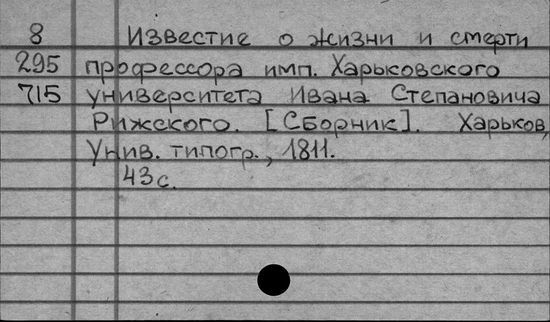 8 Известие о жизни и смерти
295 профессора имп. Харьковского
715 университета Ивана Степановича
Рижского. [Сборник]. Харьков,
Унив. типогр., 1811.
43 с.